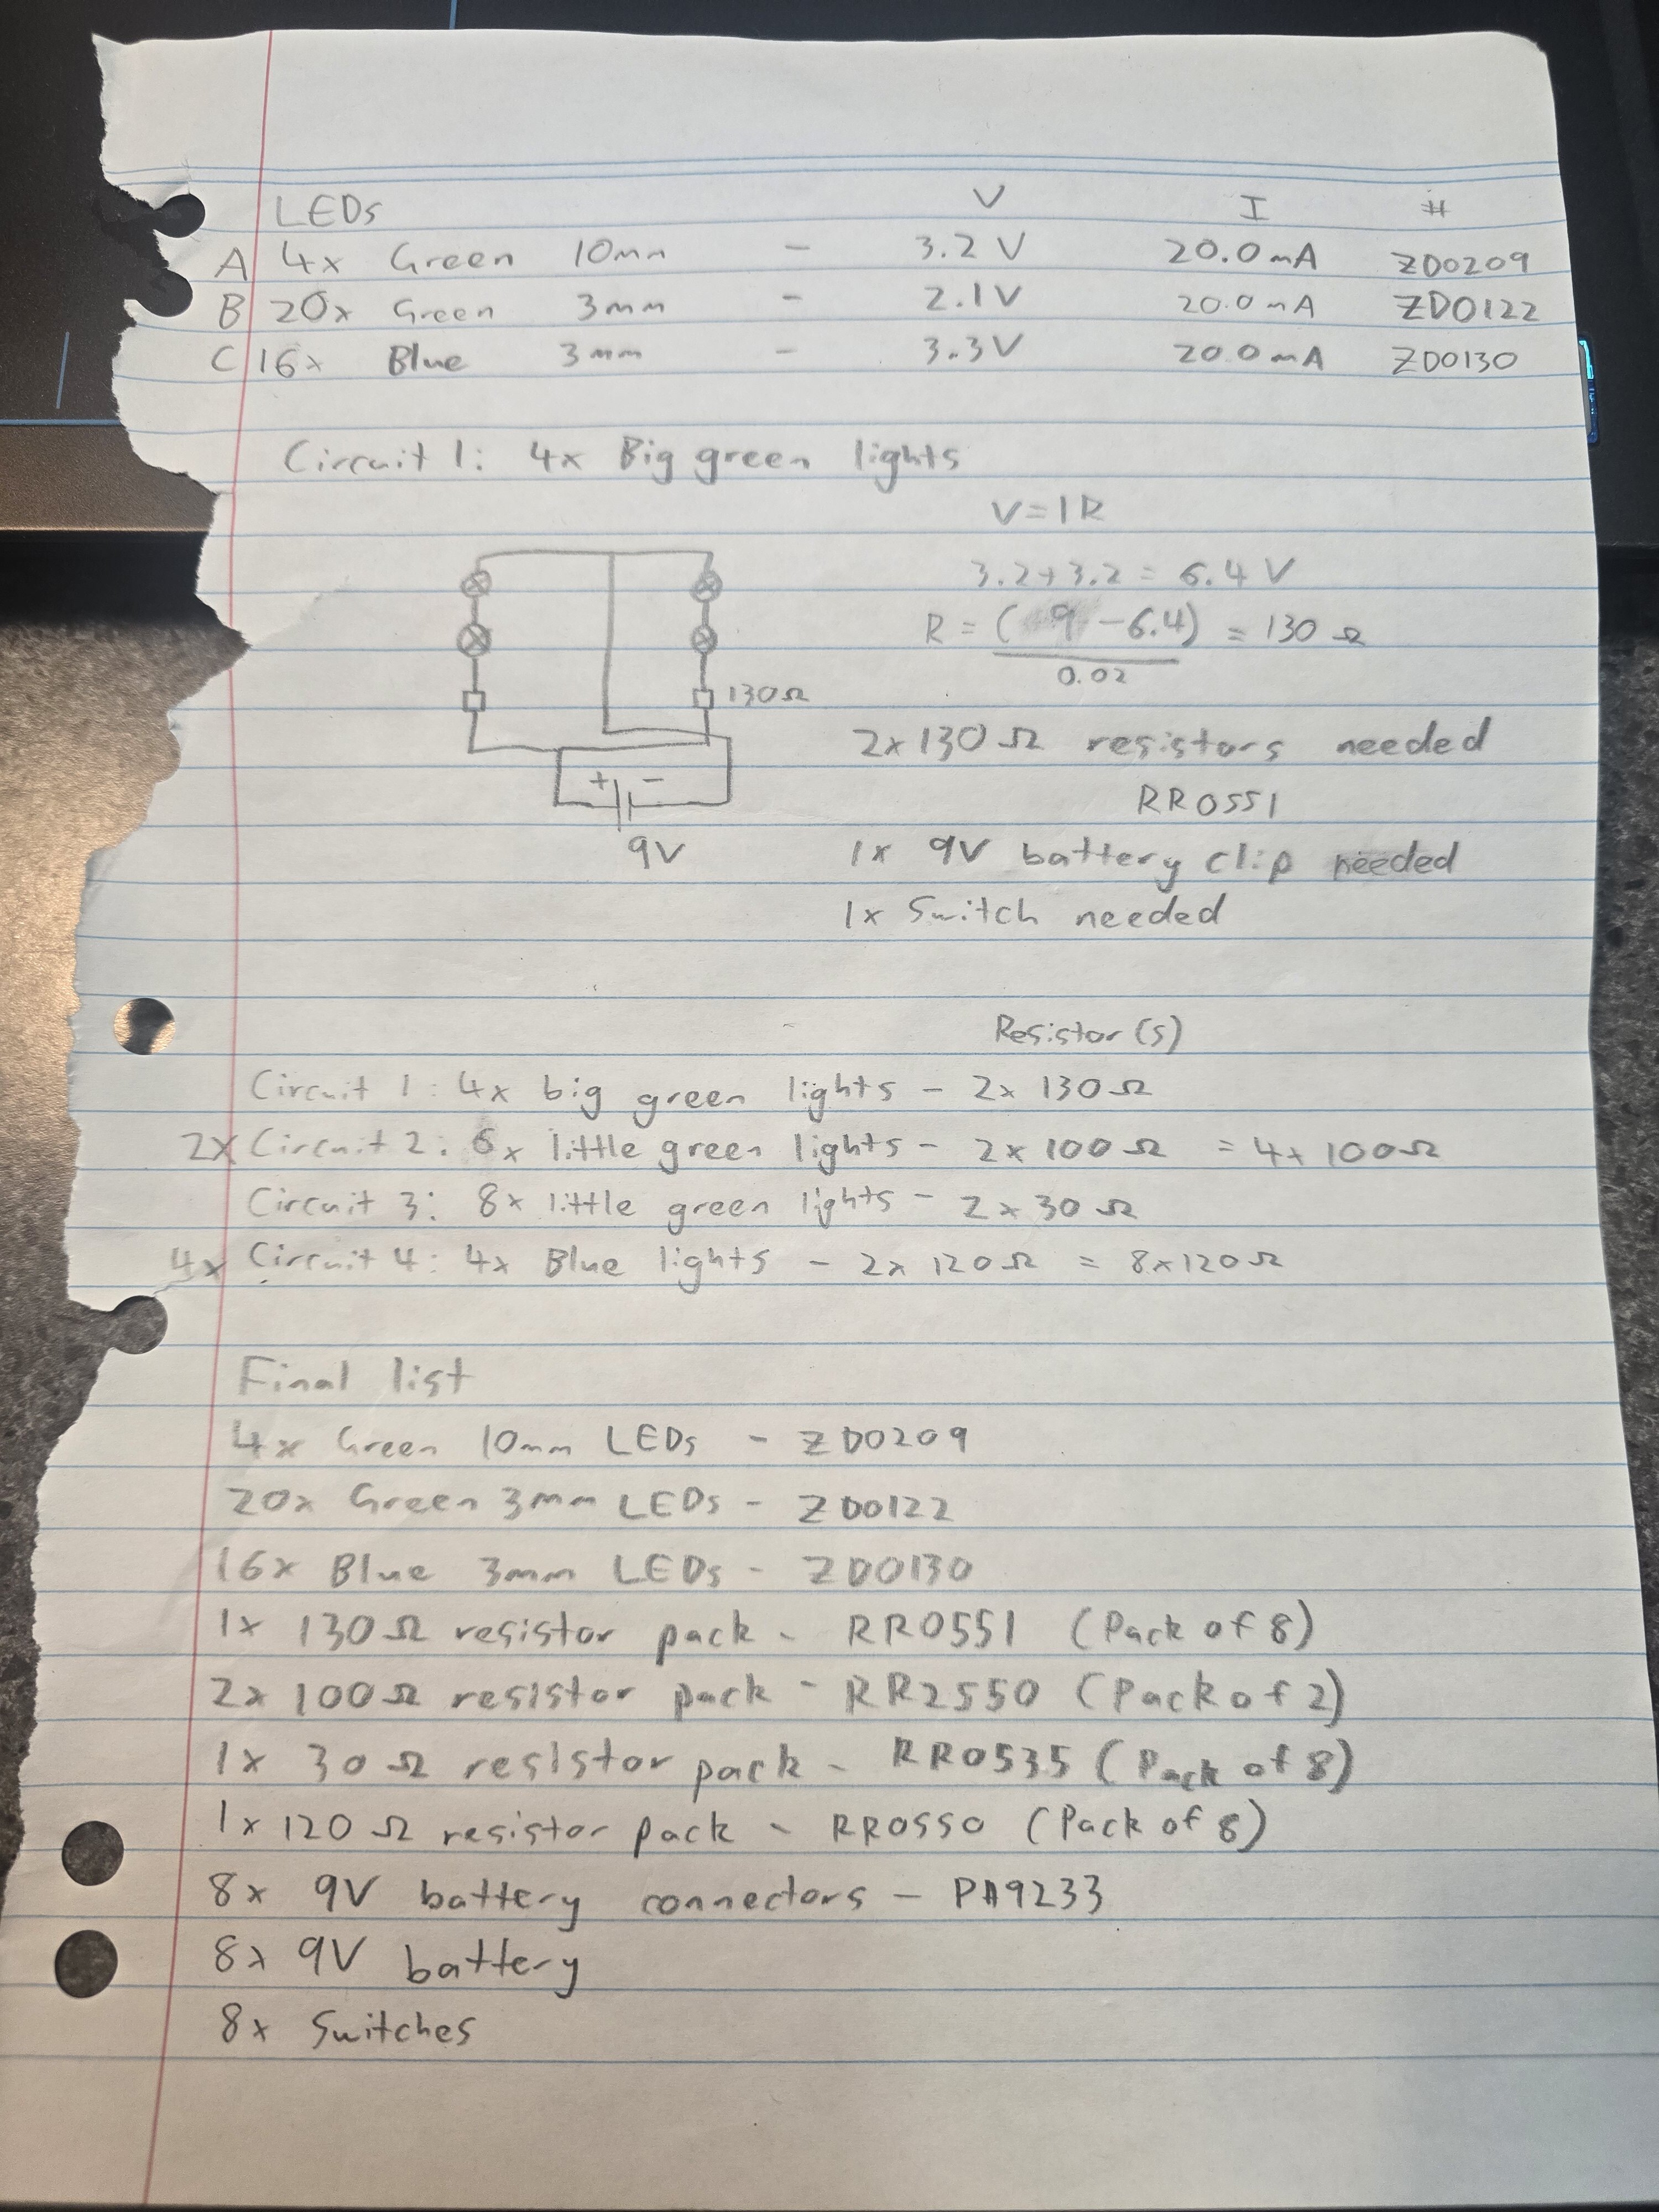 LEDs V I #
A 4x Green 10mm - 3.2 V 20.0mA ZD0209
B 20x Green 3mm - 2.1V 20.0mA ZD0122
C 16x Blue 3mm - 3.3V 20.0mA ZD0130
Circuit 1: 4x Big green lights
V=IR
3.2+3.2 = 6.4 V
R = (9-6.4) = 130 Ω
0.02
130Ω
2x130Ω resistors needed
RR0551
+ -
9V
1x 9V battery clip needed
1x Switch needed
Resistor(s)
Circuit 1: 4x big green lights - 2x 130Ω
2x Circuit 2: 6x little green lights - 2x 100Ω = 4x 100Ω
Circuit 3: 8x little green lights - 2x30Ω
4x Circuit 4: 4x Blue lights - 2x 120Ω = 8x120Ω
Final list
4x Green 10mm LEDs - ZD0209
20x Green 3mm LEDs - ZD0122
16x Blue 3mm LEDs - ZD0130
1x 130Ω resistor pack - RR0551 (Pack of 8)
2x 100Ω resistor pack - RR2550 (Pack of 2)
1x 30Ω resistor pack - RR0535 (Pack of 8)
1x 120Ω resistor pack - RR0550 (Pack of 8)
8x 9V battery connectors - PA9233
8x 9V battery
8x Switches